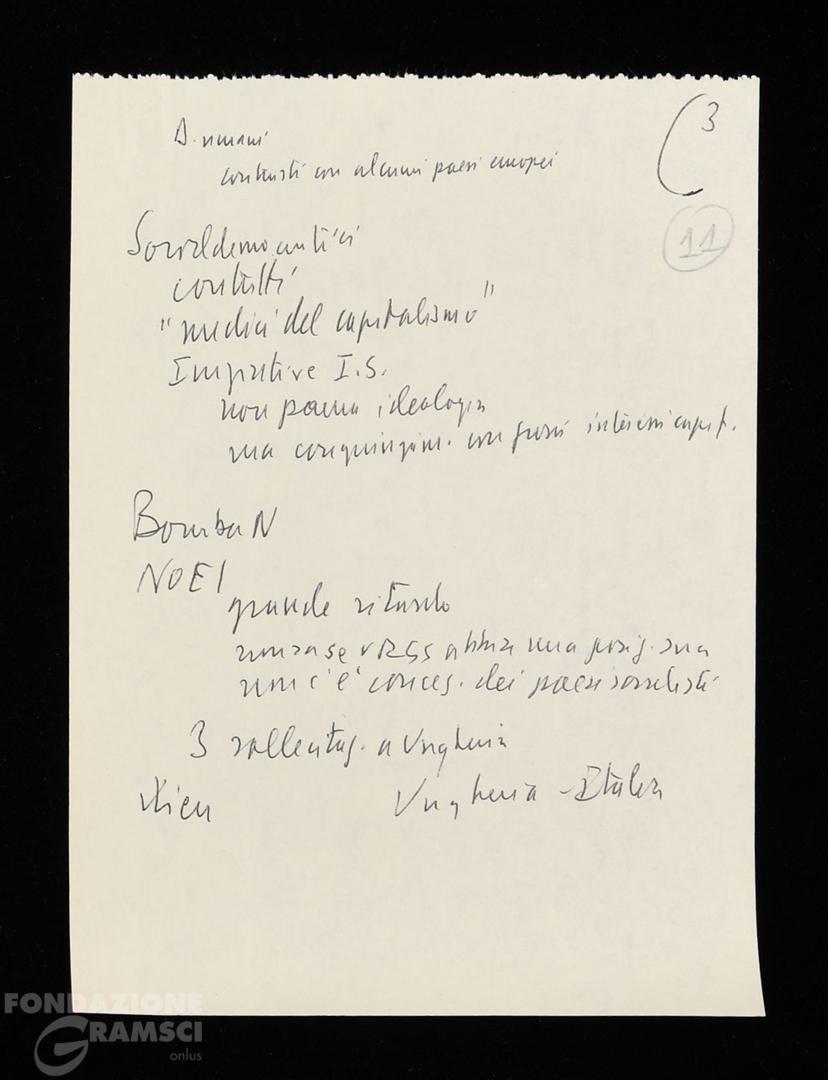 3
11
D. umani
contrasti con alcuni paesi europei
Socialdemocratici
contatti
"medici del capitalismo"
Iniziative I.S.
non ideologia
ma con grossi interessi capit.
Bomba N
NOEI
grande ritardo
non sa se URSS abbia una posiz. sua
non c'è conces. dei paesi socialisti
3 sollecitaz. a Ungheria
Ungheria - Italia
FONDAZIONE
GRAMSCI
onlus